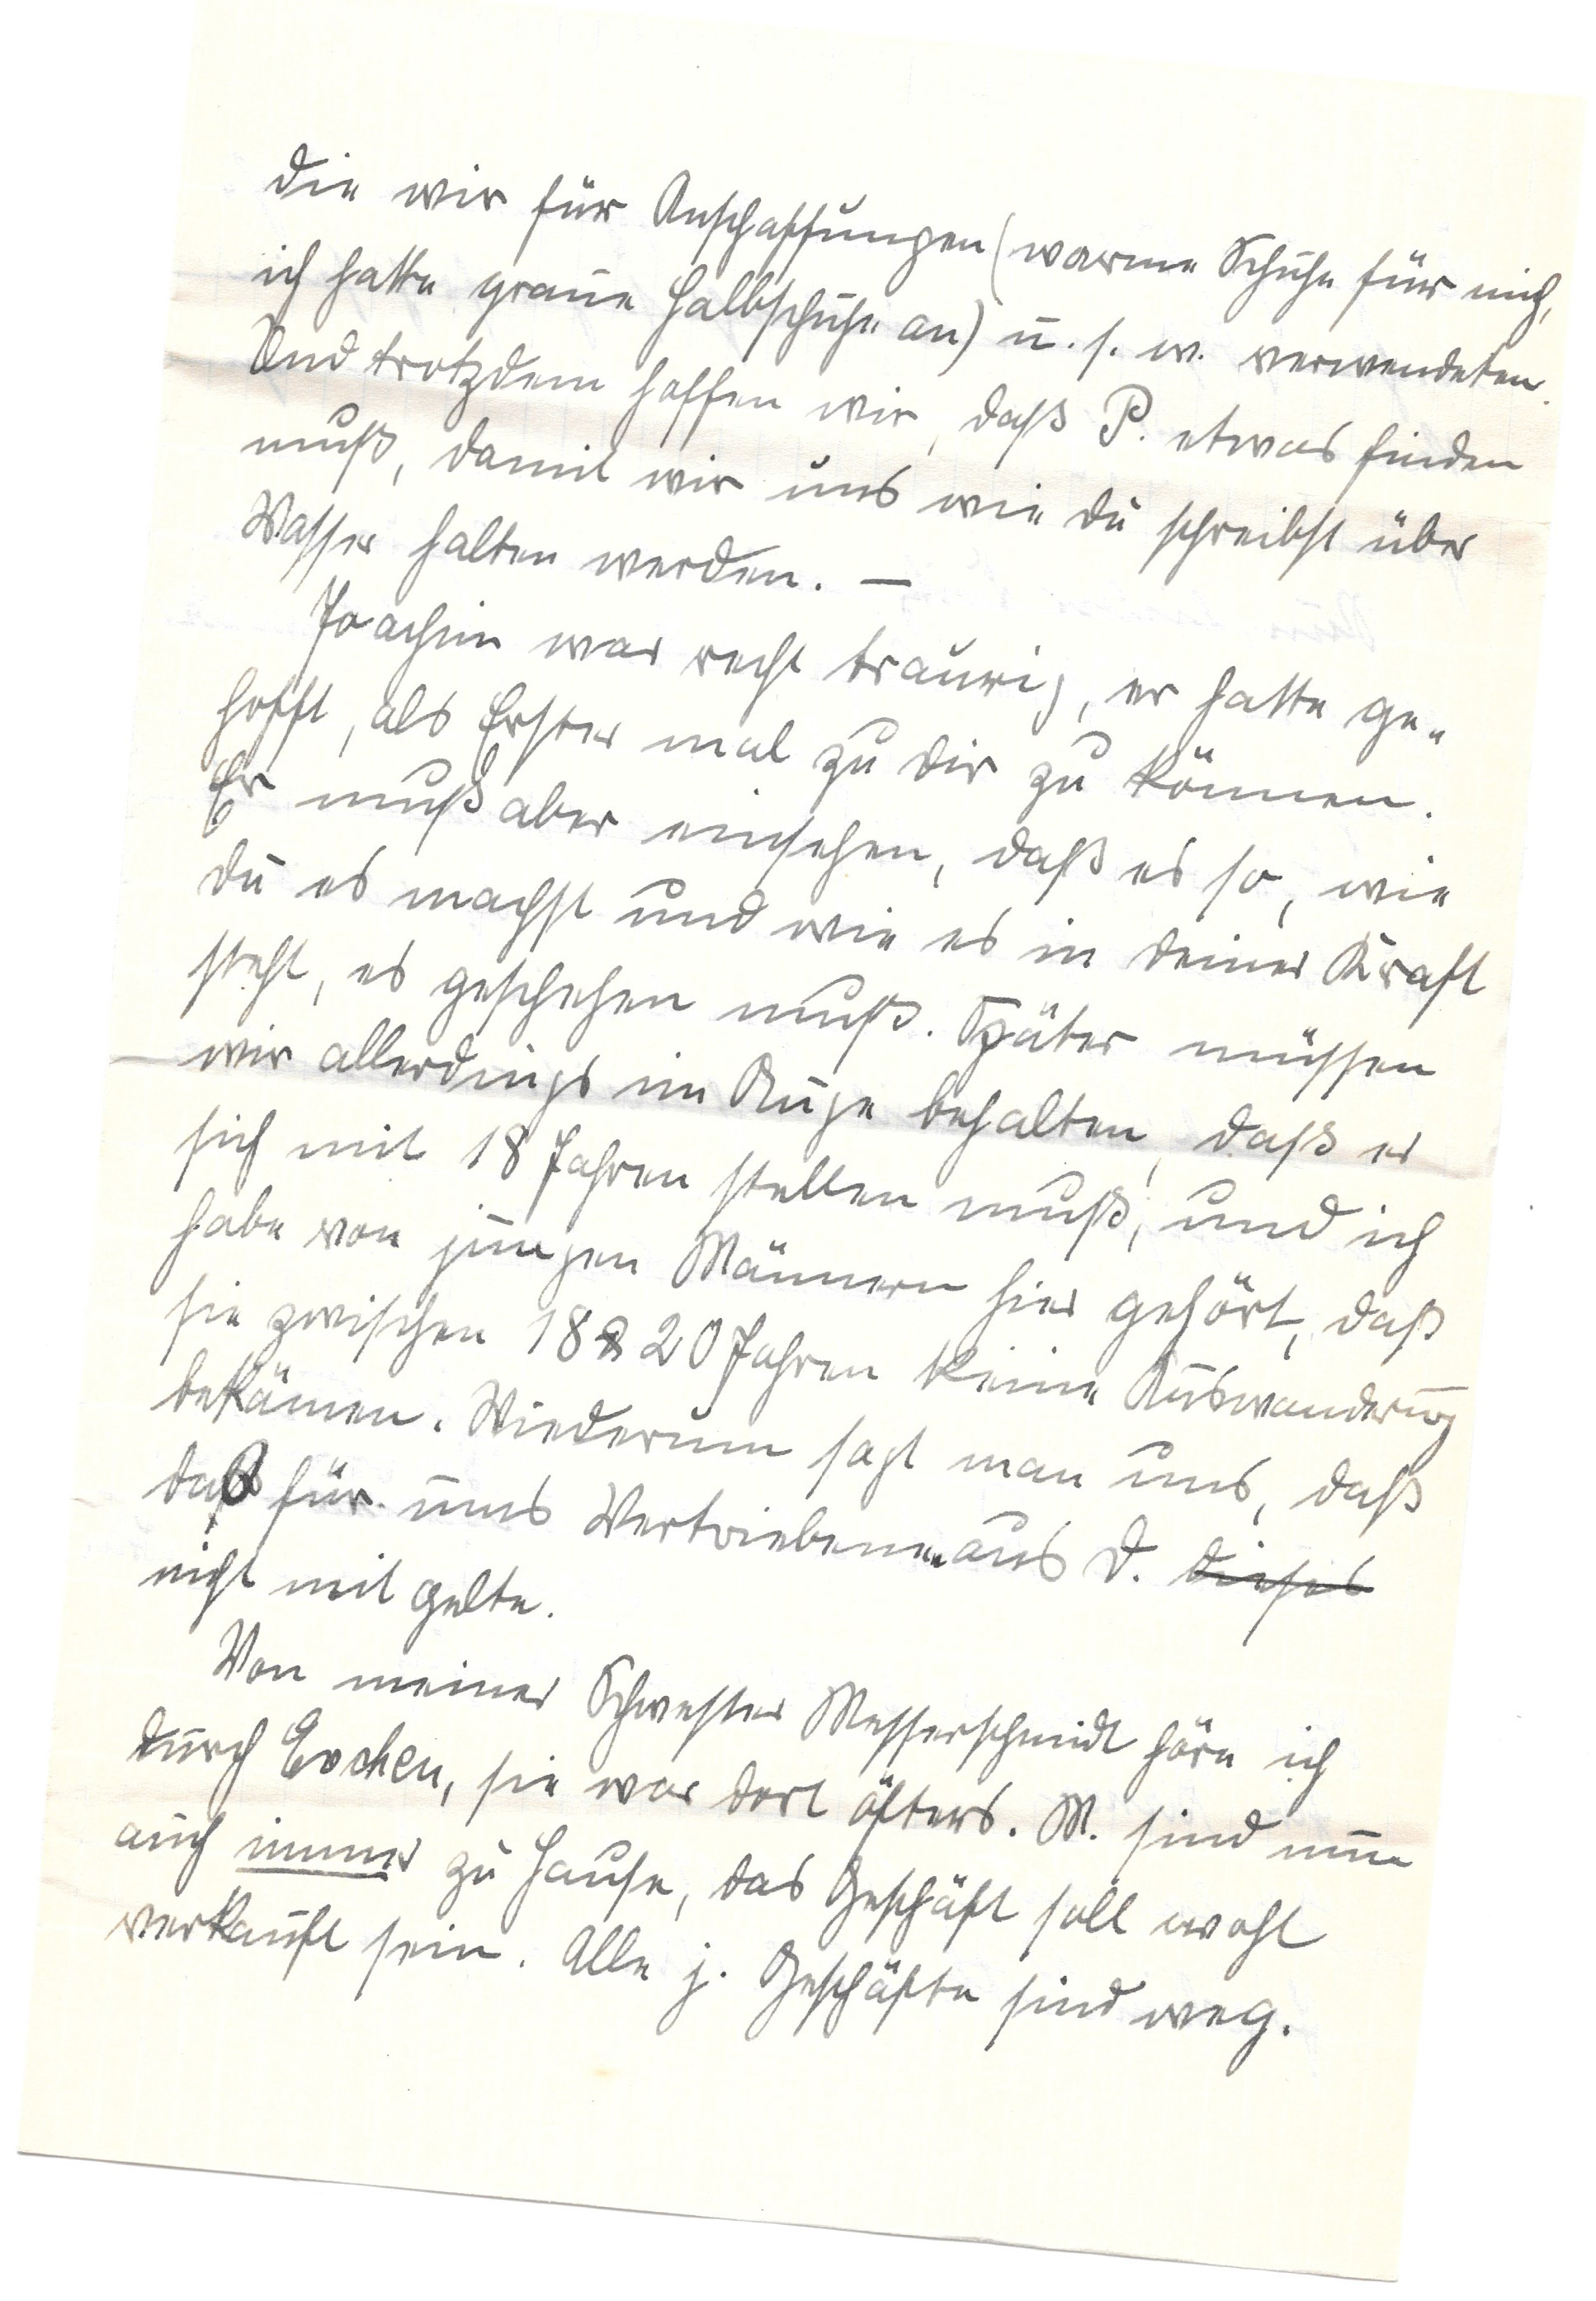 die wir für Anschaffungen (warme Schuhe für mich,
ich hatte graue Halbschuhe an) u. s. w. verwendeten.
Und trotzdem hoffen wir, daß P. etwas finden
muß, damit wir uns wie du schreibst über
Wasser halten werden. —
Joachim war recht traurig, er hatte ge-
hofft, als Erster mal zu dir zu können.
Er muß aber einsehen, daß es so, wie
du es machst und wie es in deiner Kraft
steht, es geschehen muß. Später müssen
wir allerdings im Auge behalten, daß er
sich mit 18 Jahren stellen muß, und ich
habe von jungen Männern hier gehört, daß
sie zwischen 18 & 20 Jahren keine Auswanderung
bekämen. Wiederum sagt man uns, daß
das für uns Vertriebenen aus D. dieses
nicht mit gelte.
Von meiner Schwester Messerschmidt höre ich
durch Evchen, sie war dort öfters. M. sind nun
auch immer zu Hause, das Geschäft soll wohl
verkauft sein. Alle j. Geschäfte sind weg.